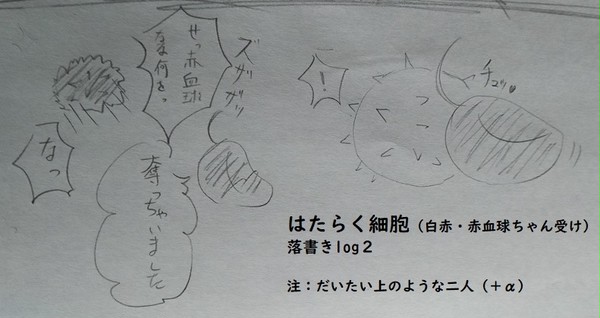 チュッ
！
ズザザッ
せっ赤血球
なな何をっ
なっ
奪っちゃいました
はたらく細胞（白赤・赤血球ちゃん受け）
落書きlog２
注：だいたい上のような二人（＋α）